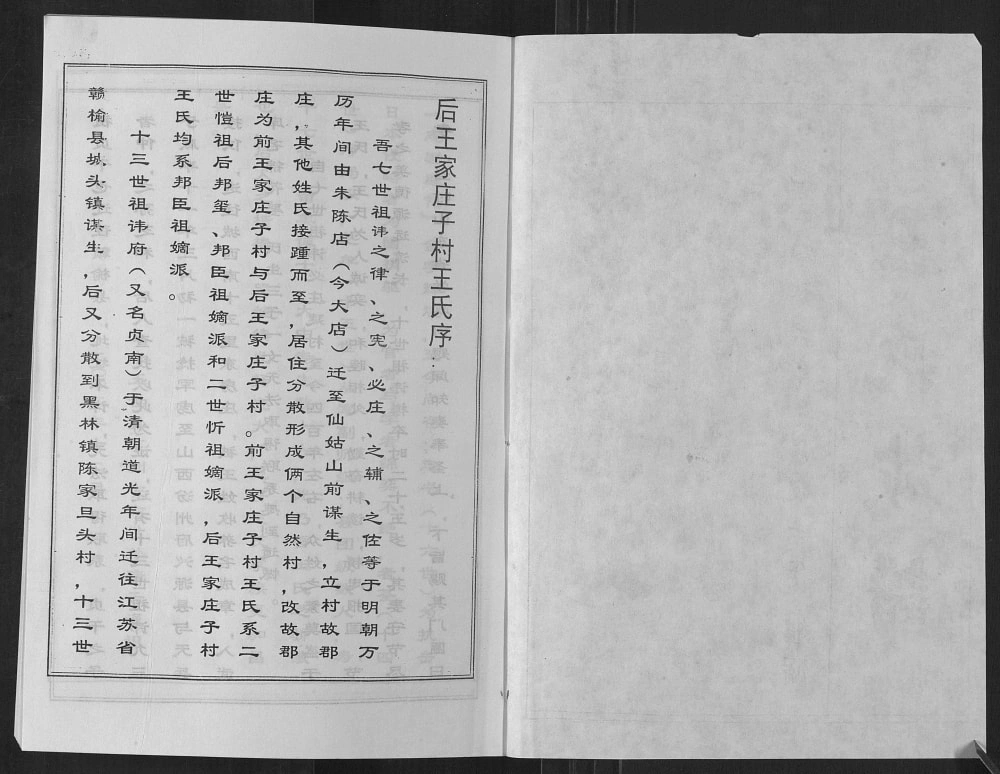 后王家庄子村王氏序
吾七世祖讳之律、之宪、必庄、之辅、之佐等于明朝万
历年间由朱陈店（今大店）迁至仙姑山前谋生，立村故郡
庄，其他姓氏接踵而至，居住分散形成俩个自然村，改故郡
庄为前王家庄子村与后王家庄子村。前王家庄子村王氏系二
世恺祖后邦玺、邦臣祖嫡派和二世忻祖嫡派，后王家庄子村
王氏均系邦臣祖嫡派。
十三世祖讳府（又名贞南）于清朝道光年间迁往江苏省
赣榆县城头镇谋生，后又分散到黑林镇陈家旦头村，十三世